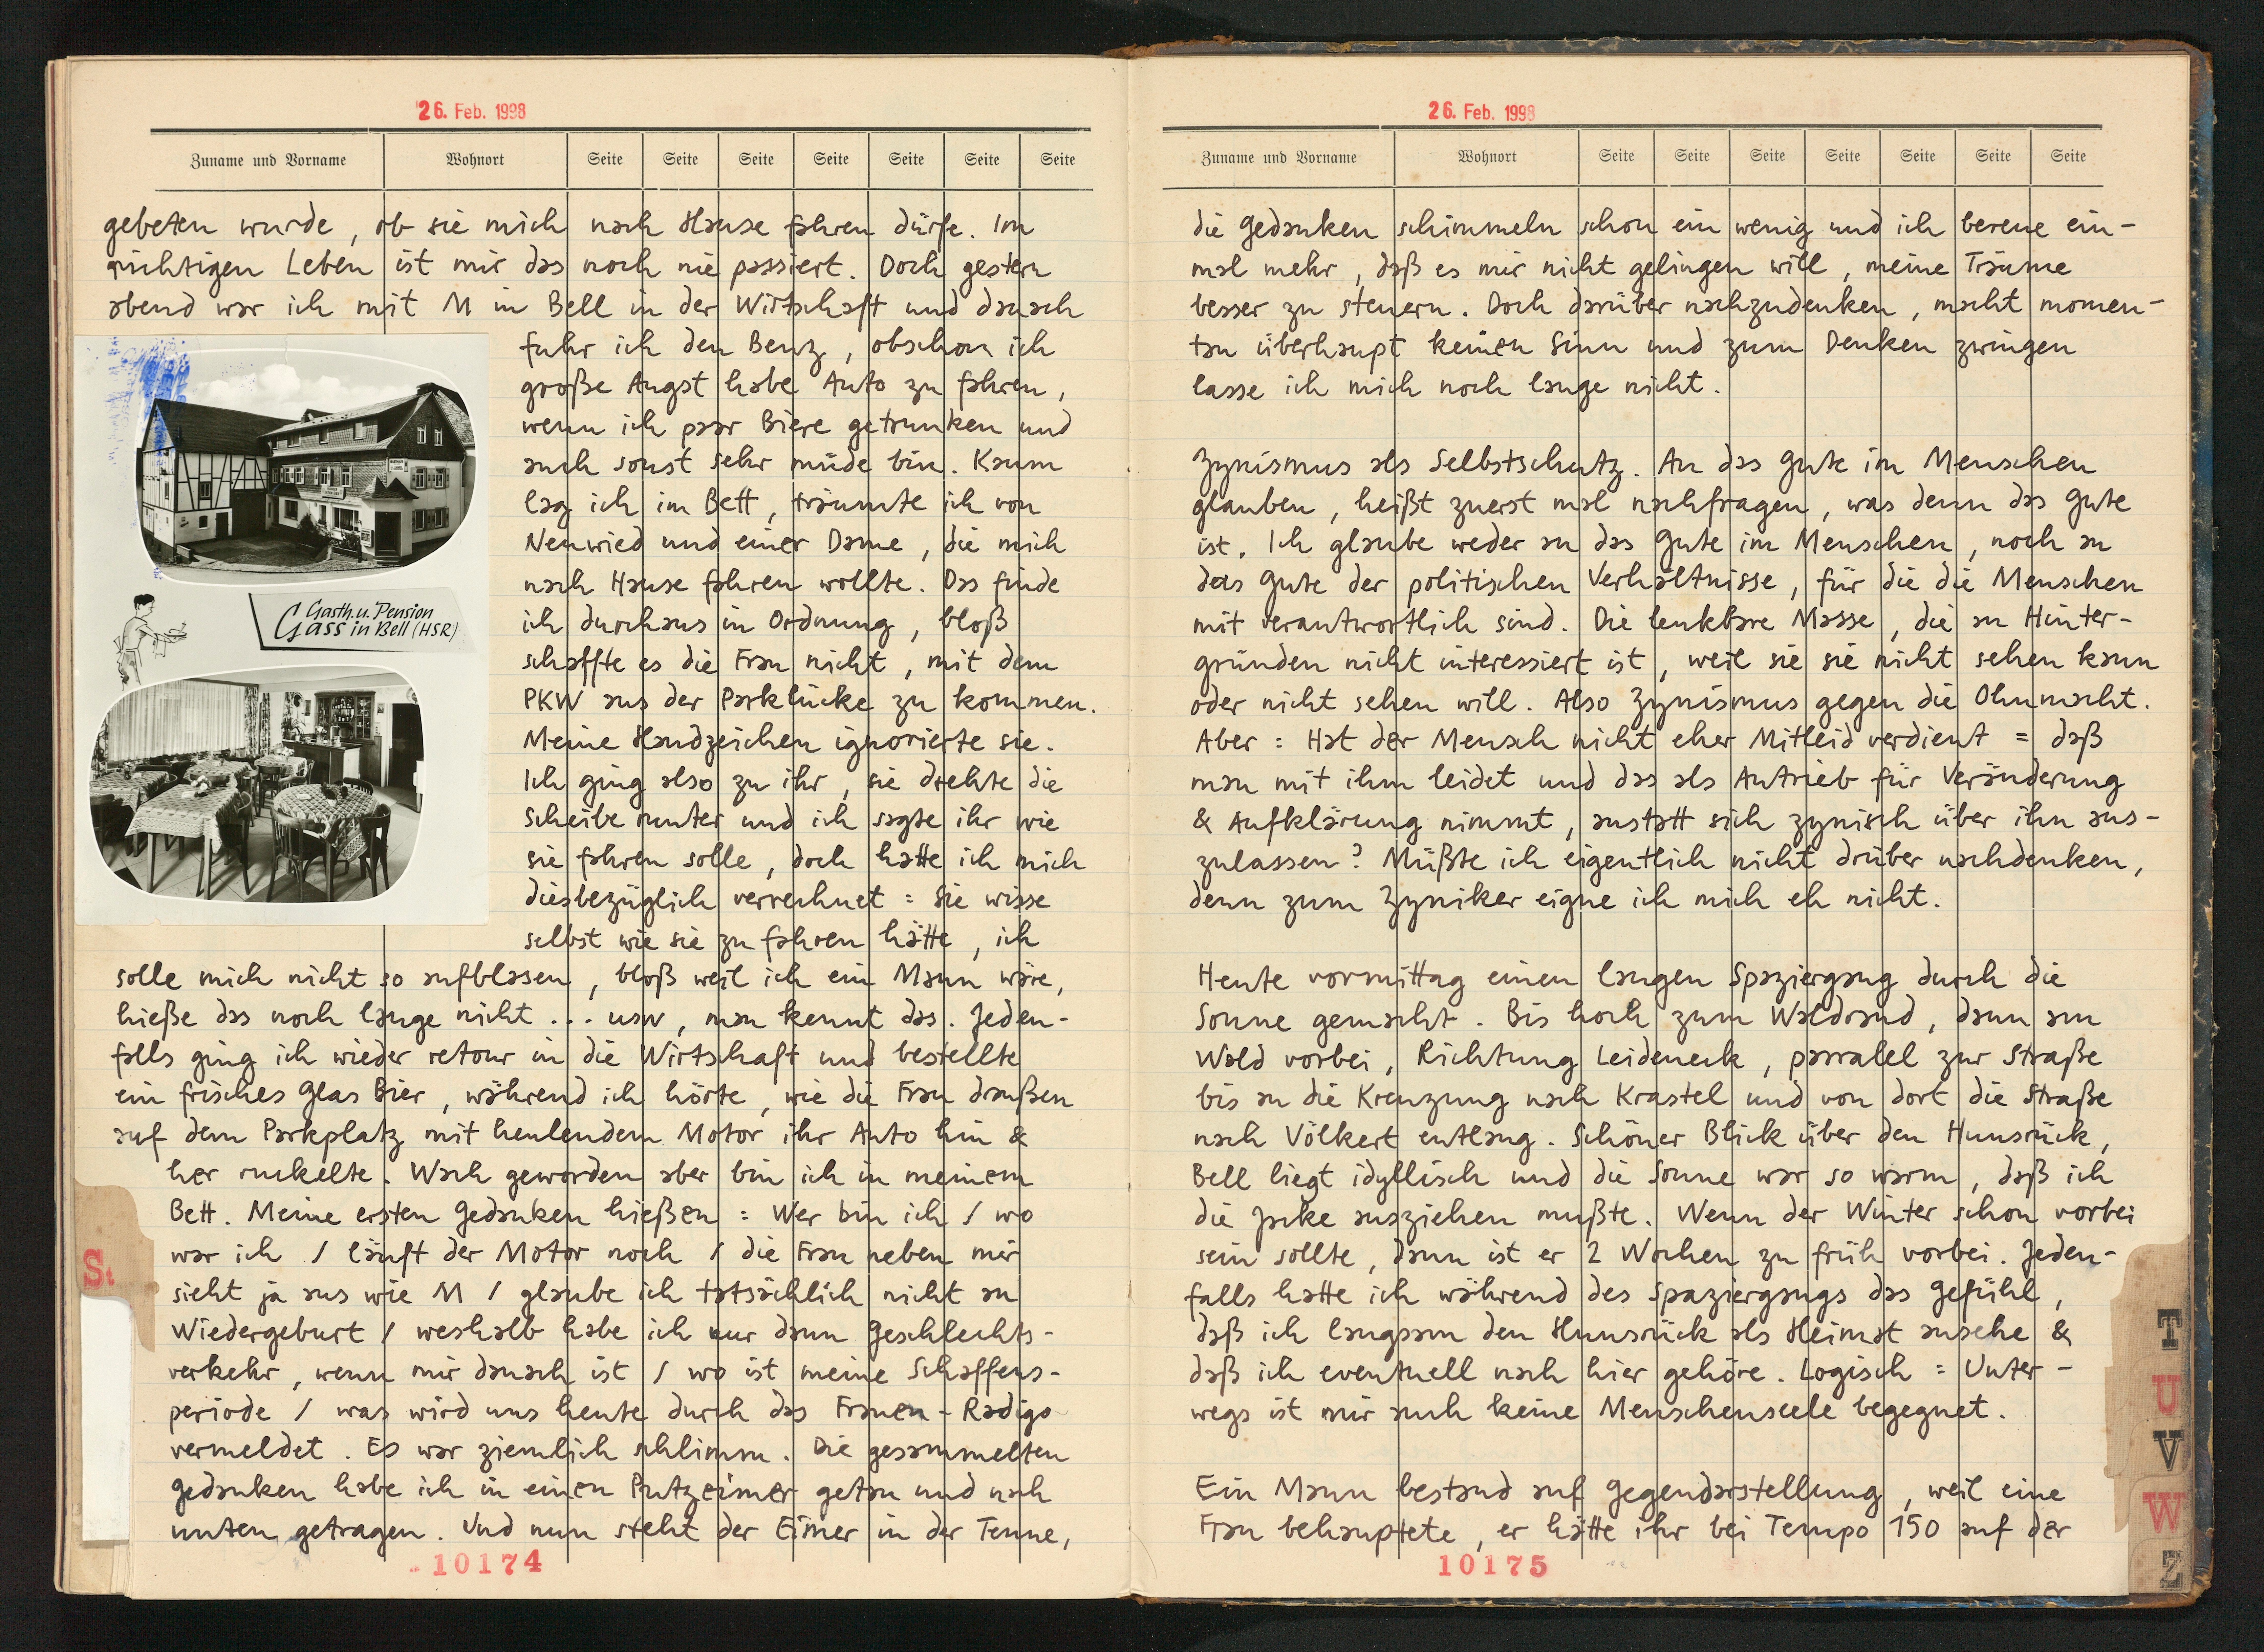 26. Feb. 1998
Zuname und Vorname Wohnort Seite Seite Seite Seite Seite Seite Seite
gebeten wurde, ob sie mich nach Hause fahren dürfe. Im
richtigen Leben ist mir das noch nie passiert. Doch gestern
abend war ich mit M in Bell in der Wirtschaft und danach
fuhr ich den Benz, obschon ich
große Angst habe Auto zu fahren,
wenn ich paar Biere getrunken und
auch sonst sehr müde bin. Kaum
lag ich im Bett, träumte ich von
Neuwied und einer Dame, die mich
nach Hause fahren wollte. Das finde
ich durchaus in Ordnung, bloß
schaffte es die Frau nicht, mit dem
PKW aus der Parklücke zu kommen.
Meine Handzeichen ignorierte sie.
Ich ging also zu ihr, sie drehte die
Scheibe runter und ich sagte ihr wie
sie fahren solle, doch hatte ich mich
diesbezüglich verrechnet = Sie wisse
selbst wie sie zu fahren hätte, ich
solle mich nicht so aufblasen, bloß weil ich ein Mann wäre,
hieße das noch lange nicht ... usw, man kennt das. Jeden-
falls ging ich wieder retour in die Wirtschaft und bestellte
ein frisches Glas Bier, während ich hörte, wie die Frau draußen
auf dem Parkplatz mit heulendem Motor ihr Auto hin &
her ruckelte. Wach geworden aber bin ich in meinem
Bett. Meine ersten Gedanken hießen = Wer bin ich / wo
war ich / läuft der Motor noch / die Frau neben mir
sieht ja aus wie M / glaube ich tatsächlich nicht an
Wiedergeburt / weshalb habe ich nur dann Geschlechts-
verkehr, wenn mir danach ist / wo ist meine Schaffens-
periode / was wird uns heute durch das Frauen-Radigo
vermeldet. Es war ziemlich schlimm. Die gesammelten
Gedanken habe ich in einen Putzeimer getan und nach
unten getragen. Und nun steht der Eimer in der Tenne,
10174
Gasth. u. Pension
Gass in Bell (HSR)
St
26. Feb. 1998
Zuname und Vorname Wohnort Seite Seite Seite Seite Seite Seite Seite
die Gedanken schimmeln schon ein wenig und ich bereue ein-
mal mehr, daß es mir nicht gelingen will, meine Träume
besser zu steuern. Doch darüber nachzudenken, macht momen-
tan überhaupt keinen Sinn und zum Denken zwingen
lasse ich mich noch lange nicht.
Zynismus als Selbstschutz. An das Gute im Menschen
glauben, heißt zuerst mal nachfragen, was denn das Gute
ist. Ich glaube weder an das Gute im Menschen, noch an
das Gute der politischen Verhältnisse, für die die Menschen
mit verantwortlich sind. Die lenkbare Masse, die an Hinter-
gründen nicht interessiert ist, weil sie sie nicht sehen kann
oder nicht sehen will. Also Zynismus gegen die Ohnmacht.
Aber = Hat der Mensch nicht eher Mitleid verdient = daß
man mit ihm leidet und das als Antrieb für Veränderung
& Aufklärung nimmt, anstatt sich zynisch über ihn aus-
zulassen? Müßte ich eigentlich nicht drüber nachdenken,
denn zum Zyniker eigne ich mich eh nicht.
Heute vormittag einen langen Spaziergang durch die
Sonne gemacht. Bis hoch zum Waldrand, dann am
Wald vorbei, Richtung Leideneck, parralel zur Straße
bis an die Kreuzung nach Krastel und von dort die Straße
nach Völkert entlang. Schöner Blick über den Hunsrück,
Bell liegt idyllisch und die Sonne war so warm, daß ich
die Jacke ausziehen mußte. Wenn der Winter schon vorbei
sein sollte, dann ist er 2 Wochen zu früh vorbei. Jeden-
falls hatte ich während des Spaziergangs das Gefühl,
daß ich langsam den Hunsrück als Heimat ansehe &
daß ich eventuell nach hier gehöre. Logisch = Unter-
wegs ist mir auch keine Menschenseele begegnet.
Ein Mann bestand auf Gegendarstellung, weil eine
Frau behauptete, er hätte ihr bei Tempo 150 auf der
10175
T
U
V
W
Z